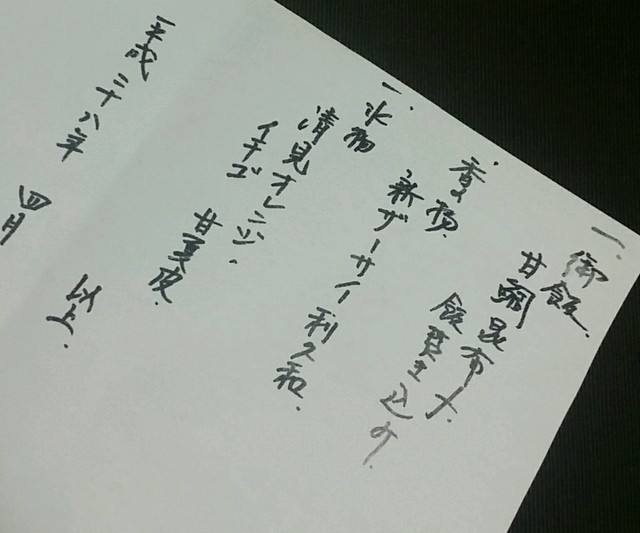 一、御飯、
甘鯛昆布〆
飯蒸
香の物、
新ザーサイ利久和、
一、水物
清見オレンジ、
イチゴ 甘夏
以上、
平成二十八年 四月